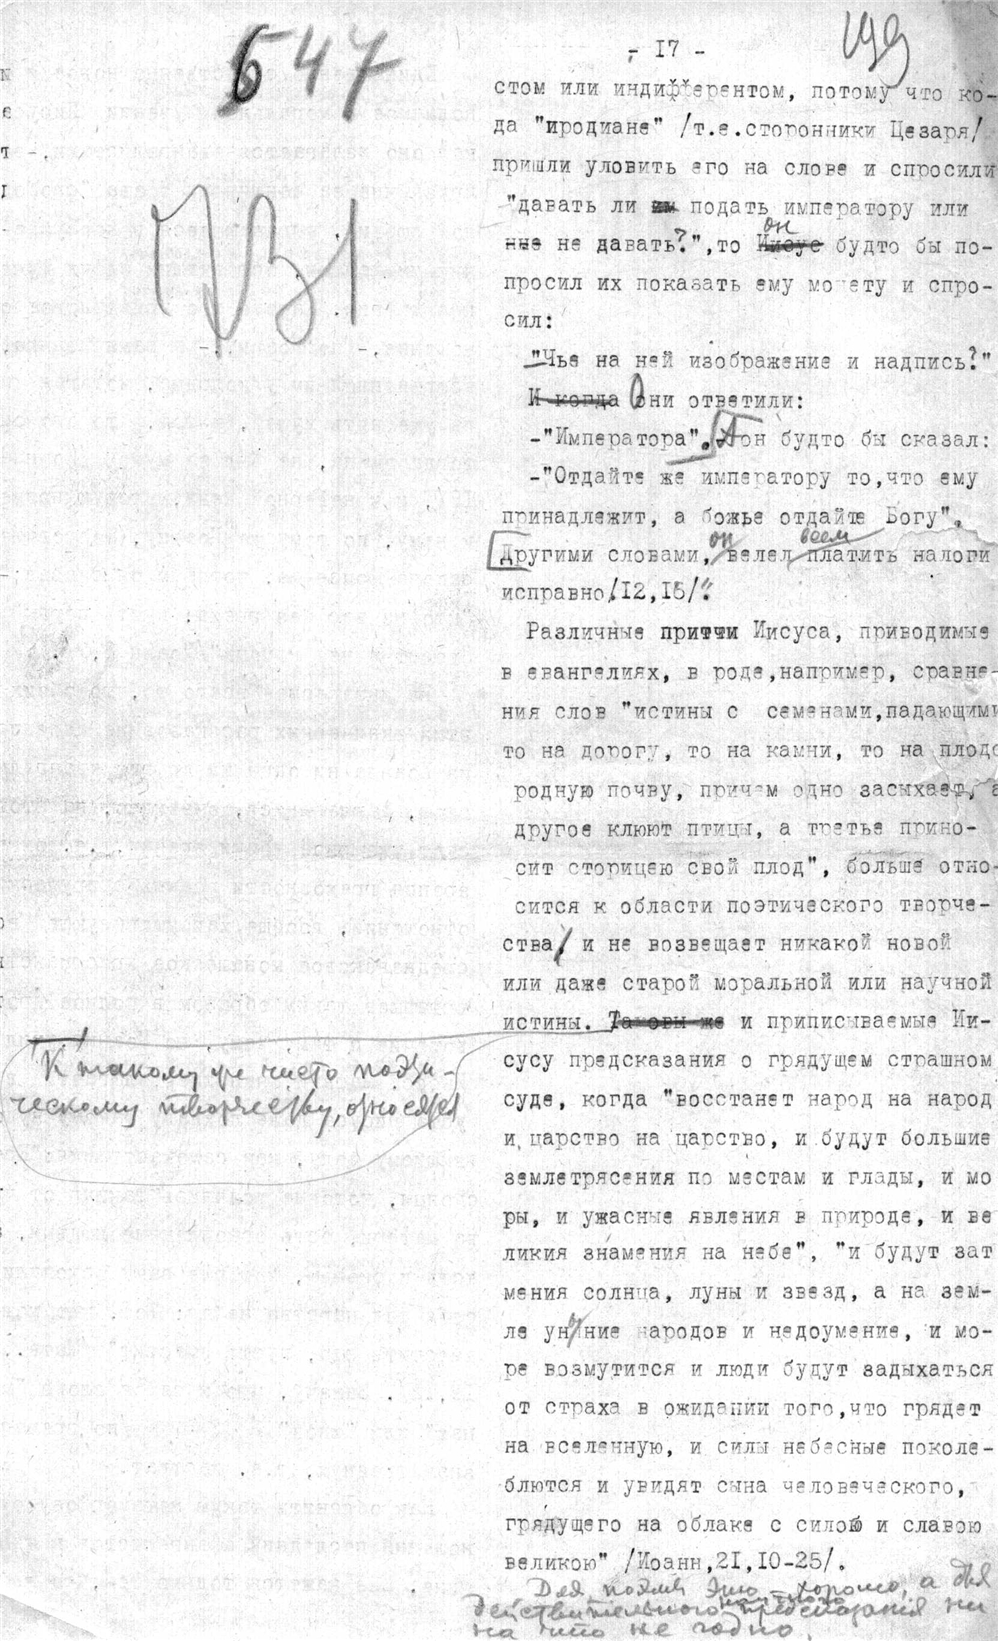 547
731
- 17 -
199
стом или индифферентом, потому что ко-
да "иродиане" /т.е.сторонники Цезаря/
пришли уловить его на слове и спросили
"давать ли подать императору или
он
ные не давать?",то Иисус будто бы по-
просил их показать ему монету и спро-
сил:
"Чье на ней изображение и надпись?"
И когда Они ответили:
-"Императора". А он будто бы сказал:
-"Отдайте же императору то,что ему
принадлежит, а божье отдайте Богу".
он всем
Другими словами, велел платить налоги
исправно /12,16/.
Различные притчи Иисуса, приводимые
в евангелиях, в роде,например, сравне-
ния слов "истины с семенами,падающими
то на дорогу, то на камни, то на плодо
родную почву, причем одно засыхает, а
другое клюют птицы, а третье прино-
сит сторицею свой плод", больше отно-
сится к области поэтического творче-
ства, и не возвещает никакой новой
или даже старой моральной или научной
истины. Таковы же и приписываемые Ии-
К такому же чисто поэти-
ческому творчеству, относятся
сусу предсказания о грядущем страшном
суде, когда "восстанет народ на народ
и царство на царство, и будут большие
землетрясения по местам и глады, и мо
ры, и ужасные явления в природе, и ве
ликия знамения на небе", "и будут зат
мения солнца, луны и звезд, а на зем-
ле уныние народов и недоумение, и мо-
ре возмутится и люди будут задыхаться
от страха в ожидании того,что грядет
на вселенную, и силы небесные поколе-
блются и увидят сына человеческого,
грядущего на облаке с силою и славою
великою" /Иоанн,21,10-25/.
Для поэмы это хорошо, а для
действительного предсказания ни
на что не годно.